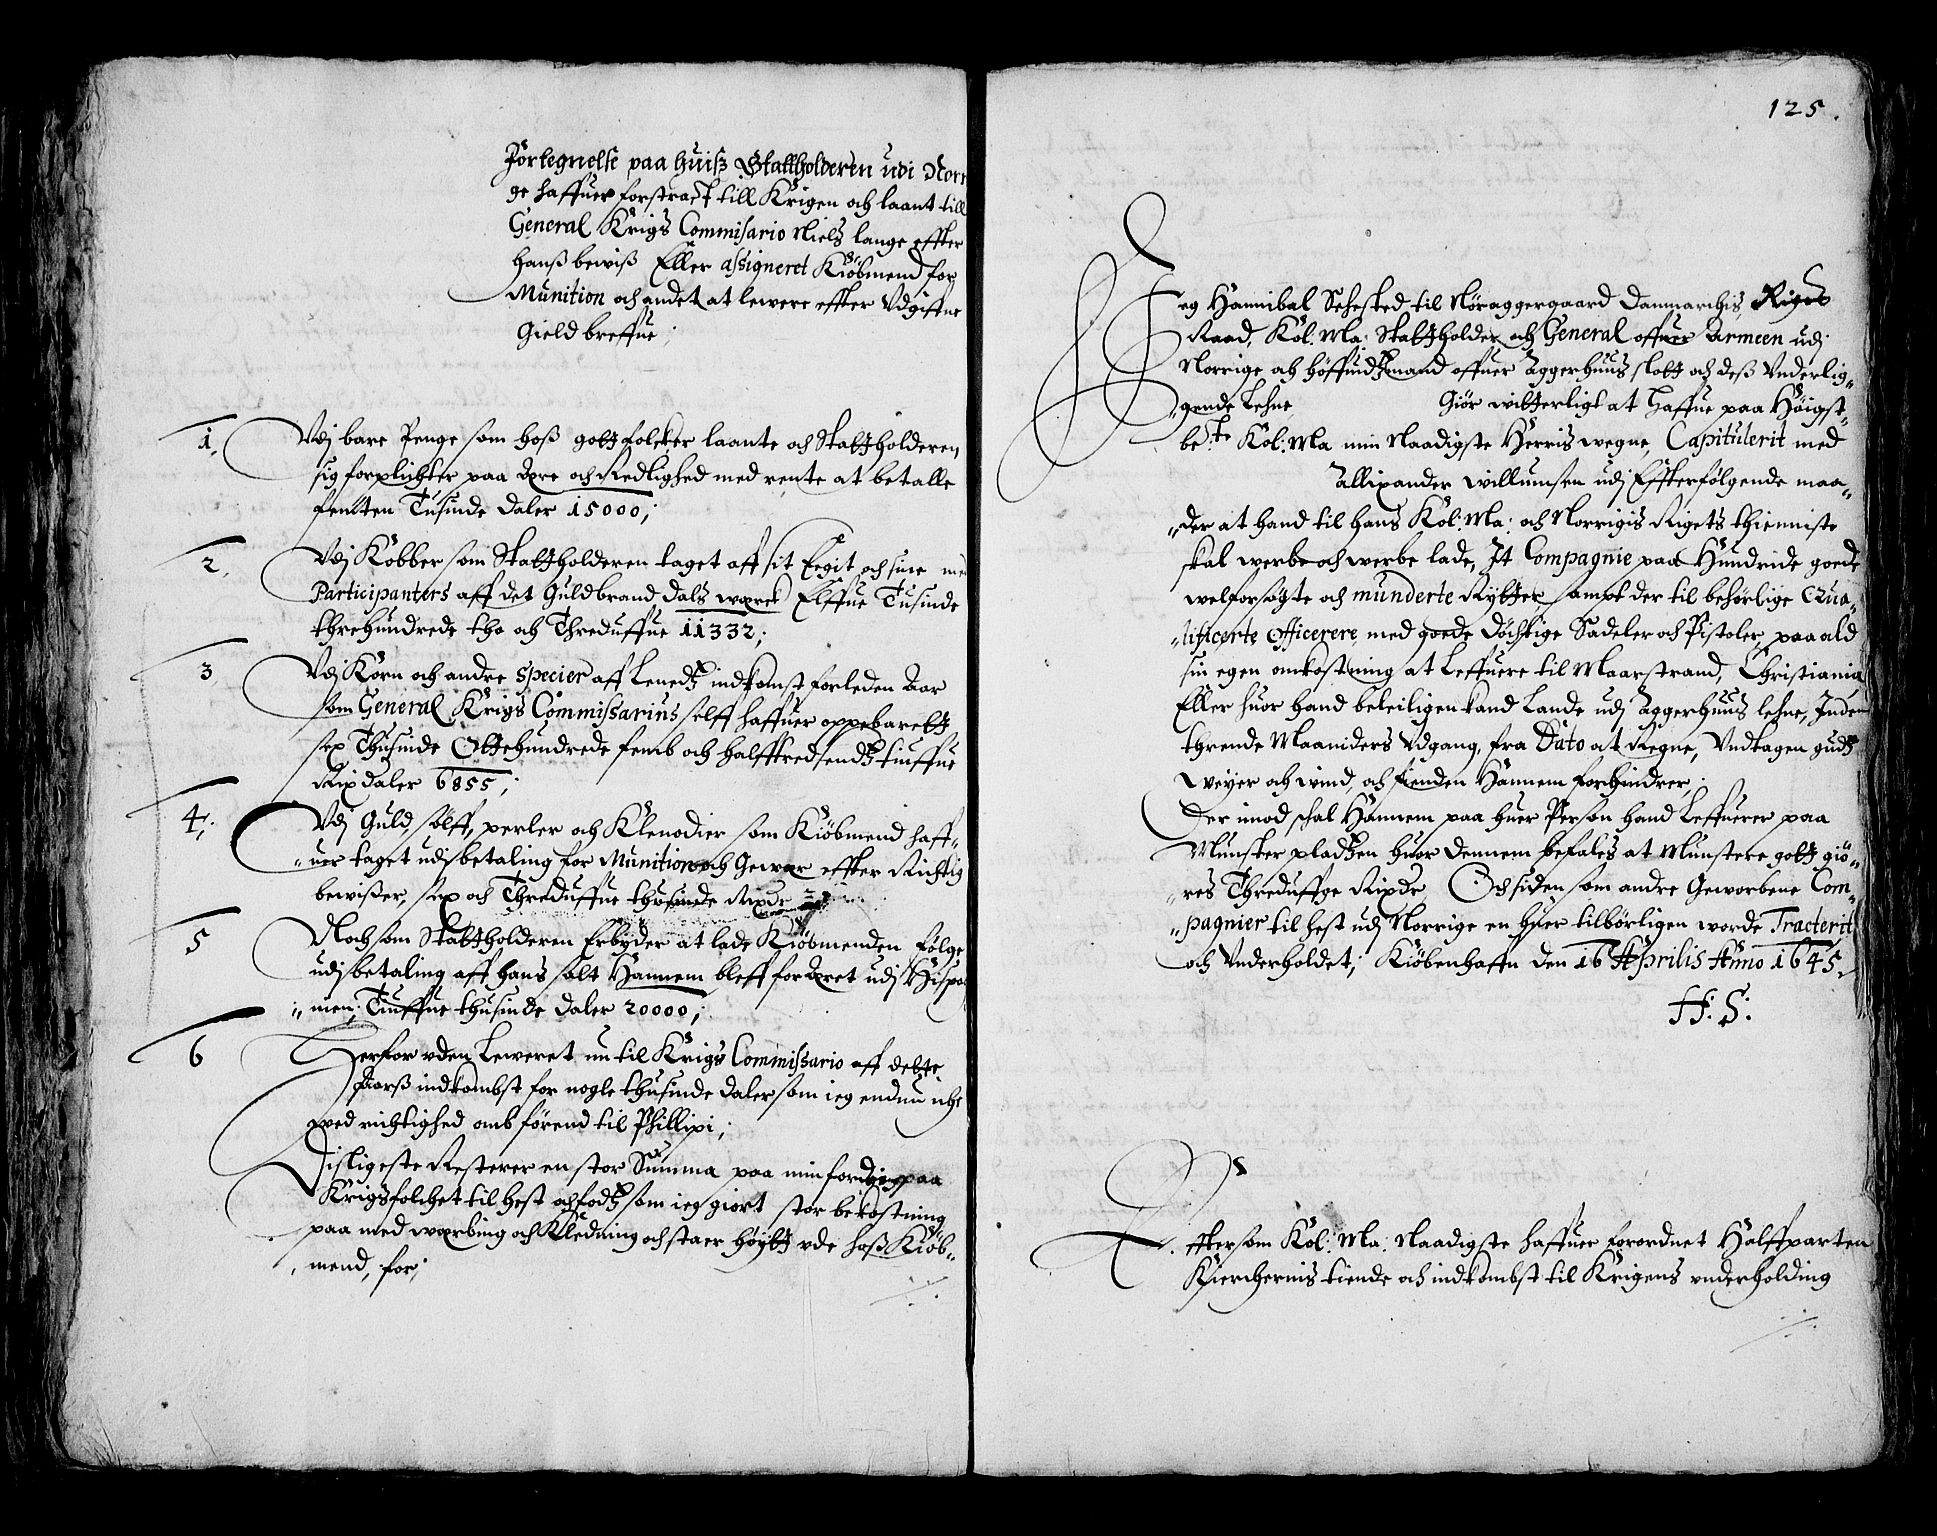 Fortegnelse paa huiß Stattholderen udi Norr
ge haffuer forstract till Krigen och laant till
General Krigs Commissario Niels lange effter
hanß bewiß Eller assigneret Kiöbmend for
Munition och andet at lewere effter Udgiffne
Gield breffue;
1. Udj bare Penge som hoß gott folcker laante och Statthholderen,
sig forplichter paa ære och Redlighed med rente at betalle
femten Tusinde daler 15000;
2. Udj Kobber som Stattholderen taget aff sit Eegit och sine me
Participanters aff det Guldbrand dals wærck Elffue Tusinde
threhundrede tho och Threduffue 11332;
3 Udj Korn och andre Specier aff Lenedtz indkomst forleden Aar
som General Krigs Commissarius selff haffuer oppebarett
sex Thusinde Ottehundrede femb och halfftredsendtz tiuffue
Rixdaler 6855;
4; Udj Guld, sölff, perler och Klenodier som Kiöbmend haff-
uer taget udj betaling for Munition och Gewær effter Richtig
bewißer, sex och Threduffue thusinde Rixdr
5 Noch som Stattholderen Erbyder at lade Kiöbmenden følge
udj betaling aff hans salt Hannem bleff foræret udj Hispa
nien; Tiuffue thusinde daler 20000;
6 Herfor uden Leweret nu til Krigs Commissario aff dette
Aarß indkombst for nogle thusinde daler som ieg endnu iche
wed richtighed omb förend til Phillipi;
Disligeste Resterer en stor Summa paa min fordring paa
Krigsfolchet til hest och fodtz som ieg giort stor bekostning
paa med wærbing och Kledning och staer höytt ude hoß Kiöb-
mend, for;
125.
Jeg Hannibal Sehested til Nöraggergaard Danmarchis Riges
Raad, Kol: Ma: Stattholder och General offuer Armeen udj
Norrige och höffuidtzmand offuer Aggerhuus slott och deß Underlig-
gende Lehne, Giör witterligt at haffue paa Höigst-
be:te Kol: Ma min Naadigste Herris wegne, Capitulerit med
Allixander Willumsen udj Effterfölgende maa-
der at hand til hans Kol: Ma: och Norrigis Rigets thienniste
skal werbe och werbe lade, It Compagnie paa Hundride goede
welforsögte och munderte Rytter, sampt der til behörlige Qua-
lificerte Officerere, med goede döchtige Sadeler och Pistoler, paa ald
sin egen omkostning at Leffuere til Maarstrand, Christiania
Eller huor hand beleiligen kand Lande udj Aggerhuus lehne, Inden
thrende Maaniders Udgang, fra Dato at Regne, Undtagen gudtz
weyer och wind, och fienden Hannem forhindrer;
Der imod schal Hannem paa huer Person hand Leffuerer paa
Munster pladtzen huor dennem befales at Munstere gott giö-
res Threduffge Rixdr Och siden som andre Geworbene Com-
pagnier til hest udj Norrige en huer tilbörligen worde Tracterit
och Underholdet; Kiöbenhaffn den 16 Aprilis Anno 1645.
H: S:
Effter som Kol: Ma: Naadigste haffuer forordnet Halffparten
Kierchernis tiende och indkombst til Krigens underholding